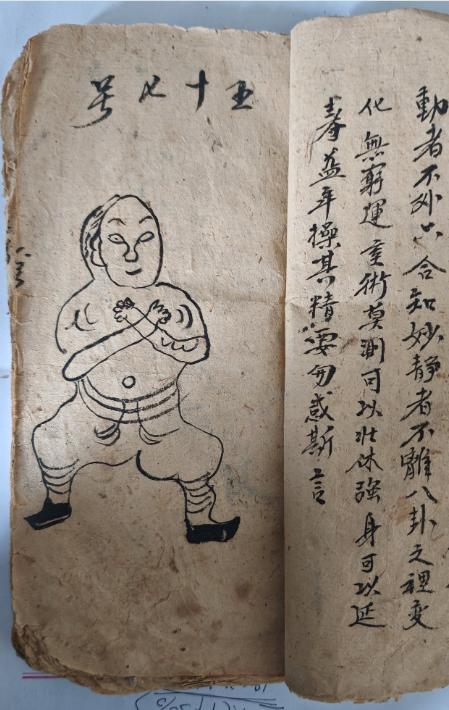 動者不外六合知妙靜者不離八卦之裡变
化無窮運術莫測可以壯体強身可以延
寿益年操其精要勿惑斯言
五十七号